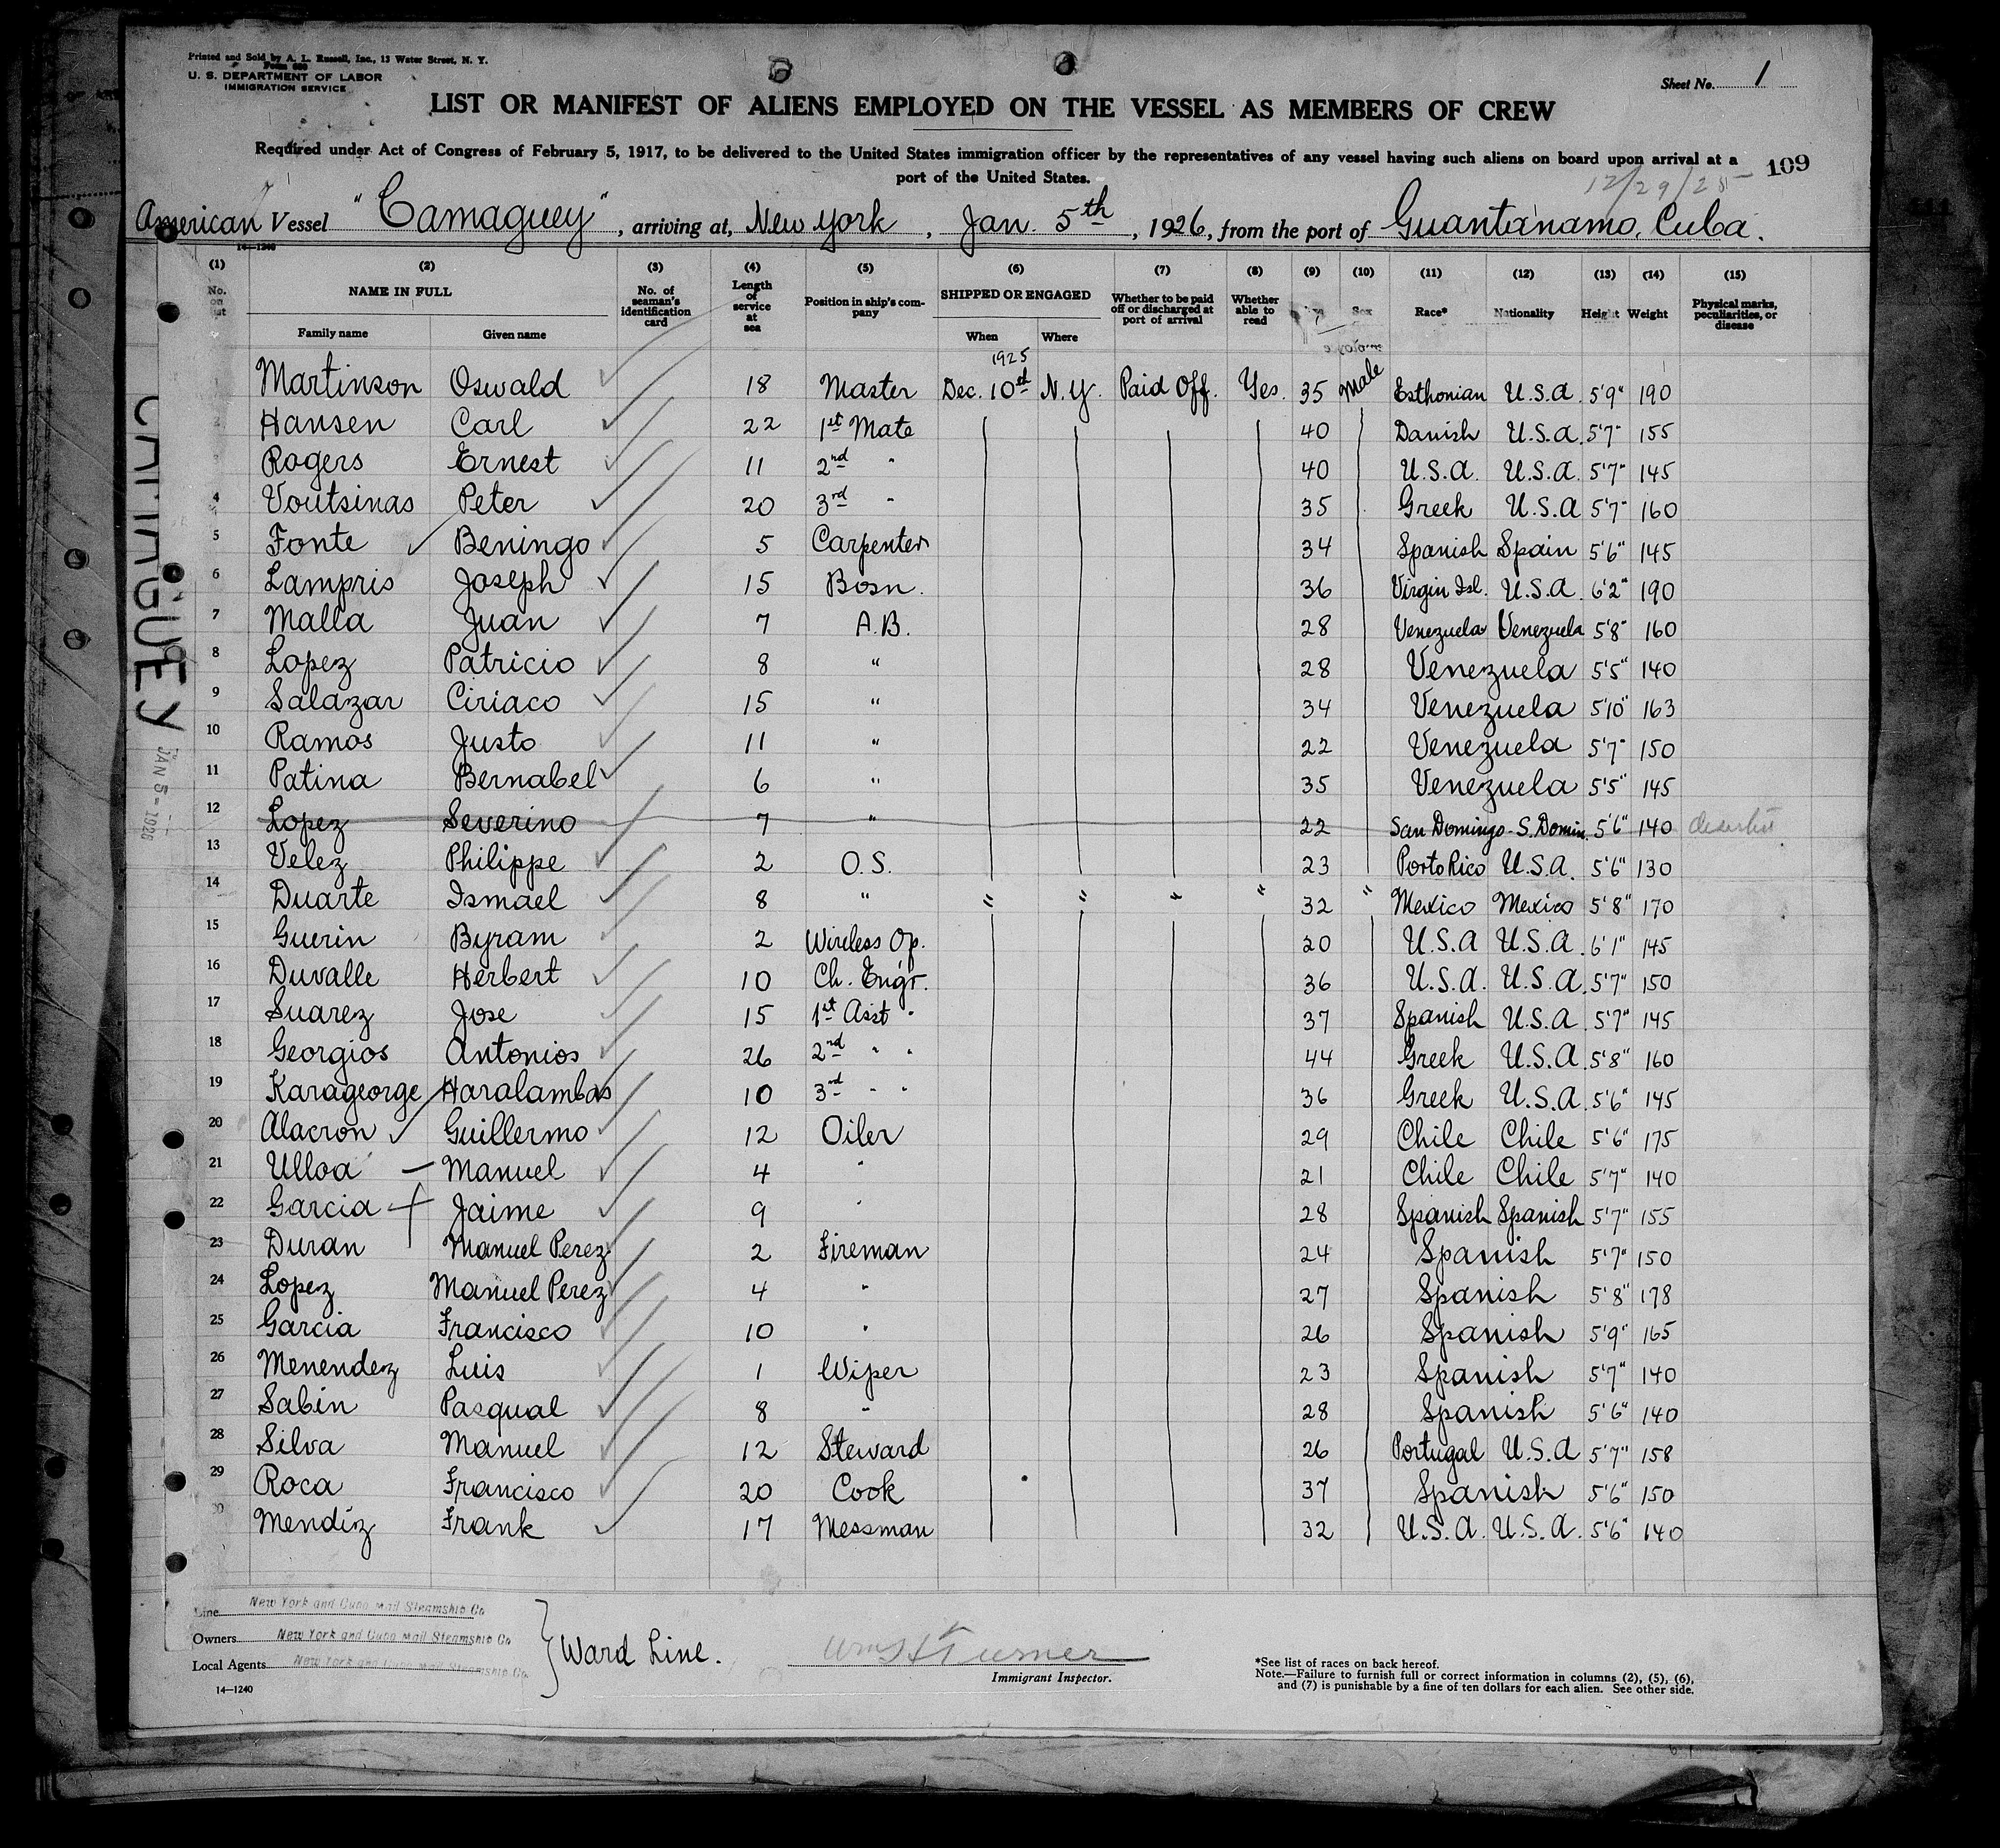 Printed and Sold by A. L. Russell, Inc., 13 Water Street, N. Y.
Form 680
U. S. DEPARTMENT OF LABOR
IMMIGRATION SERVICE
Sheet No. 1
LIST OR MANIFEST OF ALIENS EMPLOYED ON THE VESSEL AS MEMBERS OF CREW
Required under Act of Congress of February 5, 1917, to be delivered to the United States immigration officer by the representatives of any vessel having such aliens on board upon arrival at a
port of the United States.
109
12/29/25
American Vessel "Camaguey", arriving at, New York, Jan. 5th, 1926, from the port of Guantanamo, Cuba.
14—1240
(1) (2) (3) (4) (5) (6) (7) (8) (9) (10) (11) (12) (13) (14) (15)
No. on list NAME IN FULL No. of seaman's identification card Length of service at sea Position in ship's company SHIPPED OR ENGAGED Whether to be paid off or discharged at port of arrival Whether able to read Sex Race* Nationality Height Weight Physical marks, peculiarities, or disease
Family name Given name When Where
1925
Martinson Oswald 18 Master Dec. 10st N.Y. Paid Off. Yes. 35 Male Esthonian U.S.A. 5'9" 190
2 Hansen Carl 22 1st Mate 40 Danish U.S.A. 5'7" 155
3 Rogers Ernest 11 2nd " 40 U.S.A. U.S.A. 5'7" 145
4 Voutsinas Peter 20 3rd " 35 Greek U.S.A 5'7" 160
5 Fonte Beningo 5 Carpenter 34 Spanish Spain 5'6" 145
6 Lampris Joseph 15 Bosn. 36 Virgin Isl. U.S.A. 6'2" 190
7 Malla Juan 7 A.B. 28 Venezuela Venezuela 5'8" 160
8 Lopez Patricio 8 " 28 Venezuela 5'5" 140
9 Salazar Ciriaco 15 " 34 Venezuela 5'10" 163
10 Ramos Justo 11 " 22 Venezuela 5'7" 150
11 Patina Bernabel 6 " 35 Venezuela 5'5" 145
12 Lopez Severino 7 " 22 San Domingo - S. Domin. 5'6" 140
13 Velez Philippe 2 O.S. 23 Porto Rico U.S.A. 5'6" 130
14 Duarte Ismael 8 " " " " " 32 " Mexico Mexico 5'8" 170
15 Guerin Byram 2 Wireless Op. 20 U.S.A U.S.A. 6'1" 145
16 Duvalle Herbert 10 Ch. Engr. 36 U.S.A. U.S.A. 5'7" 150
17 Suarez Jose 15 1st Asst " 37 Spanish U.S.A. 5'7" 145
18 Georgios Antonios 26 2nd " " 44 Greek U.S.A. 5'8" 160
19 Karageorge Haralambos 10 3rd " " 36 Greek U.S.A. 5'6" 145
20 Alacron Guillermo 12 Oiler 29 Chile Chile 5'6" 175
21 Ulloa Manuel 4 " 21 Chile Chile 5'7" 140
22 Garcia Jaime 9 " 28 Spanish Spanish 5'7" 155
23 Duran Manuel Perez 2 Fireman 24 Spanish 5'7" 150
24 Lopez Manuel Perez 4 " 27 Spanish 5'8" 178
25 Garcia Francisco 10 " 26 Spanish 5'9" 165
26 Menendez Luis 1 Wiper 23 Spanish 5'7" 140
27 Sabin Pasqual 8 " 28 Spanish 5'6" 140
28 Silva Manuel 12 Steward 26 Portugal U.S.A 5'7" 158
29 Roca Francisco 20 Cook 37 Spanish 5'6" 150
30 Mendiz Frank 17 Messman 32 U.S.A. U.S.A. 5'6" 140
CAMAGUEY
JAN 5 - 1926
Line New York and Cuba Mail Steamship Co
Owners New York and Cuba Mail Steamship Co
Local Agents New York and Cuba Mail Steamship Co.
Ward Line.
14—1240
Wm H Turner
Immigrant Inspector.
*See list of races on back hereof.
Note.—Failure to furnish full or correct information in columns (2), (5), (6),
and (7) is punishable by a fine of ten dollars for each alien. See other side.